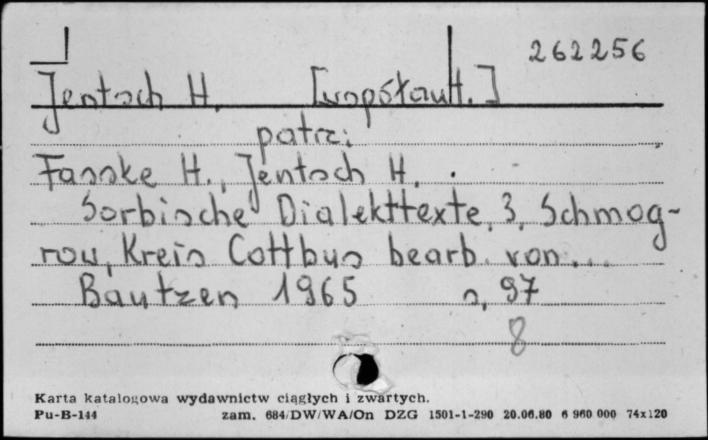 262256
Jentsch H. [współaut.]
patrz:
Fasske H., Jentsch H.
Sorbische Dialekttexte, 3, Schmog-
row, Kreis Cottbus bearb. von...
Bautzen 1965 s. 97
8
Karta katalogowa wydawnictw ciągłych i zwartych.
Pu-B-144 zam. 684/DW/WA/On DZG 1501-1-290 20.06.80 6 960 000 74x120